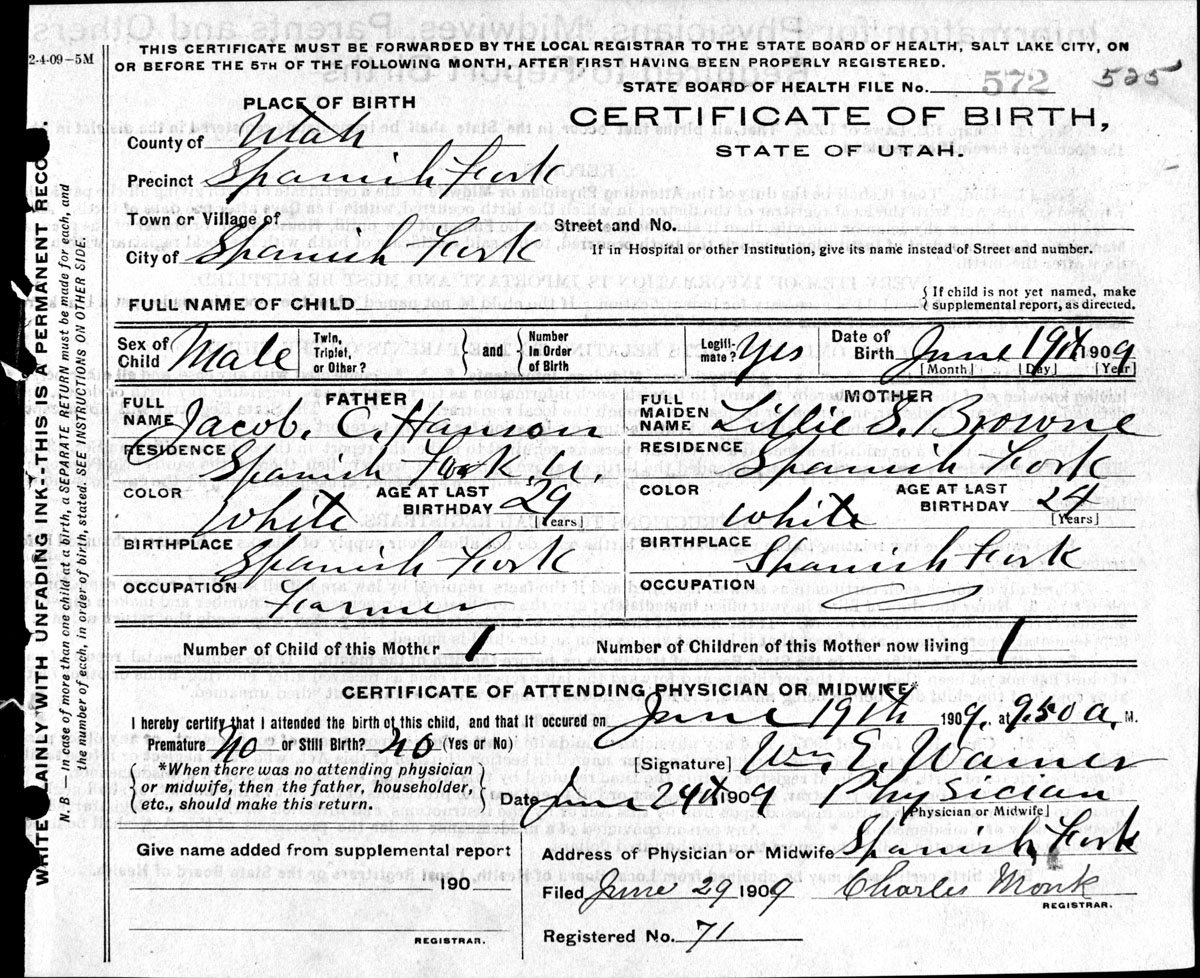 2-4-09—5M
THIS CERTIFICATE MUST BE FORWARDED BY THE LOCAL REGISTRAR TO THE STATE BOARD OF HEALTH, SALT LAKE CITY, ON
OR BEFORE THE 5TH OF THE FOLLOWING MONTH, AFTER FIRST HAVING BEEN PROPERLY REGISTERED.
STATE BOARD OF HEALTH FILE No. 572 525
PLACE OF BIRTH
CERTIFICATE OF BIRTH,
STATE OF UTAH.
County of Utah
Precinct Spanish Fork
Town or Village of
City of Spanish Fork
Street and No.
If in Hospital or other Institution, give its name instead of Street and number.
FULL NAME OF CHILD
{If child is not yet named, make supplemental report, as directed.
Sex of Child Male
Twin, Triplet, or Other?
and
Number in Order of Birth
Legitimate? Yes
Date of Birth June 19th 1909
[Month] [Day] [Year]
FATHER
FULL NAME Jacob. C. Hanson
RESIDENCE Spanish Fork
COLOR White
AGE AT LAST BIRTHDAY 29
[Years]
BIRTHPLACE Spanish Fork
OCCUPATION Farmer
MOTHER
FULL MAIDEN NAME Lillie S. Browne
RESIDENCE Spanish Fork
COLOR White
AGE AT LAST BIRTHDAY 24
[Years]
BIRTHPLACE Spanish Fork
OCCUPATION
Number of Child of this Mother 1
Number of Children of this Mother now living 1
CERTIFICATE OF ATTENDING PHYSICIAN OR MIDWIFE*
I hereby certify that I attended the birth of this child, and that it occured on June 19th 1909. at 9.50 a. M.
Premature No or Still Birth? No (Yes or No)
[Signature] Wm. E. Warner
*When there was no attending physician
or midwife, then the father, householder,
etc., should make this return.
Date June 24th 1909 Physician
[Physician or Midwife]
Give name added from supplemental report
190
REGISTRAR.
Address of Physician or Midwife Spanish Fork
Filed June 29 1909 Charles Monk
REGISTRAR.
Registered No. 71
WRITE PLAINLY WITH UNFADING INK.-THIS IS A PERMANENT RECO
N. B.— in case of more than one child at a birth, a SEPARATE RETURN must be made for each, and
the number of each, in order of birth, stated. SEE INSTRUCTIONS ON OTHER SIDE.